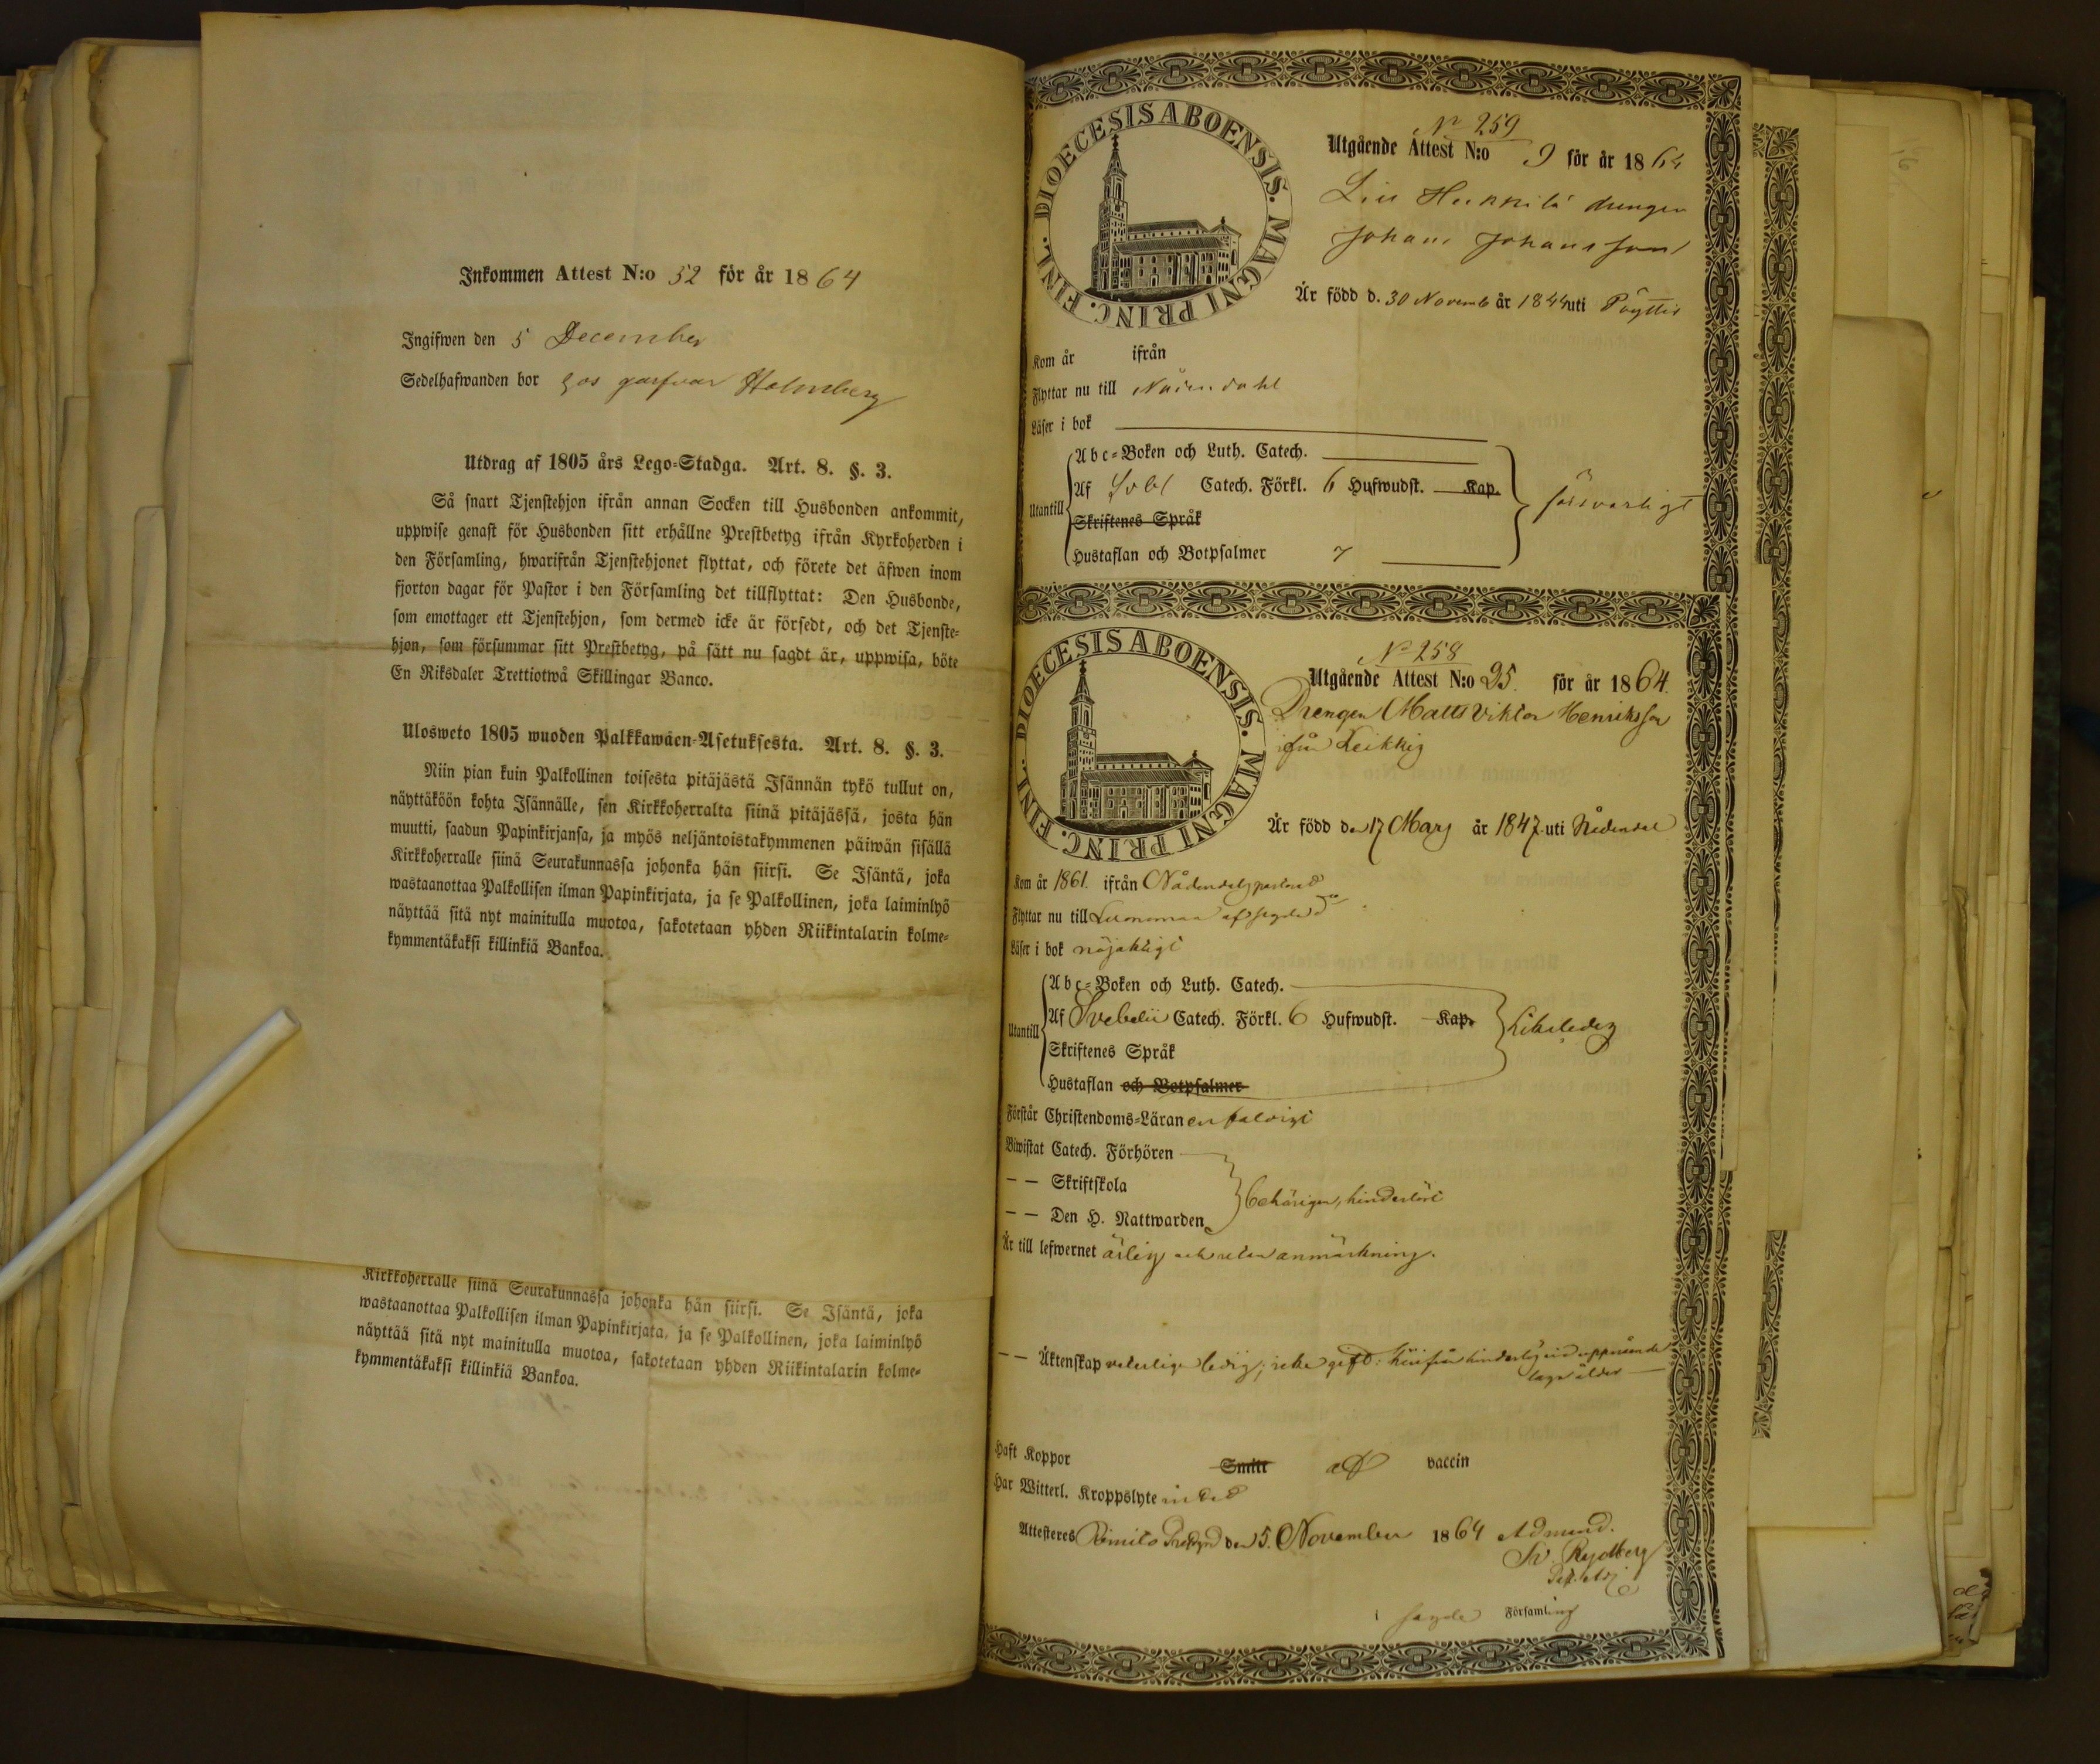 Inkommen Attest N:o 52 för år 1864
Ingifwen den 5 December
Sedelhafwanden bor hos garfvar Holmberg
Utdrag af 1805 års Lego-Stadga. Art. 8. §. 3.
Så snart Tjenstehjon ifrån annan Socken till Husbonden ankommit,
uppwise genast för Husbonden sitt erhållne Prestbetyg ifrån Kyrkoherden i
den Församling, hwarifrån Tjenstehjonet flyttat, och förete det äfwen inom
fjorton dagar för Pastor i den Församling det tillflyttat: Den Husbonde,
som emottager ett Tjenstehjon, som dermed icke är försedt, och det Tjenste-
hjon, som försummar sitt Prestbetyg, på sätt nu sagdt är, uppwisa, böte
En Riksdaler Trettiotwå Skillingar Banco.
Ulosweto 1805 wuoden Palkkawäen-Asetuksesta. Art. 8. §. 3.
Niin pian kuin Palkollinen toisesta pitäjästä Isännän tykö tullut on,
näyttäköön kohta Isännälle, sen Kirkkoherralta siinä pitäjässä, josta hän
muutti, saadun Papinkirjansa, ja myös neljäntoistakymmenen päiwän sisällä
Kirkkoherralle siinä Seurakunnassa johonka hän siirsi. Se Isäntä, joka
wastaanottaa Palkollisen ilman Papinkirjata, ja se Palkollinen, joka laiminlyö
näyttää sitä nyt mainitulla muotoa, sakotetaan yhden Riikintalarin kolme-
kymmentäkaksi killinkiä Bankoa.
Kirkkoherralle siinä Seurakunnassa johonka hän siirsi. Se Isäntä, joka
wastaanottaa Palkollisen ilman Papinkirjata, ja se Palkollinen, joka laiminlyö
näyttää sitä nyt mainitulla muotoa, sakotetaan yhden Riikintalarin kolme-
kymmentäkaksi killinkiä Bankoa.
DIOECESIS ABOENSIS. MAGNI PRINC. FINL.
N 259
Utgående Attest N:o 9 för år 1864
Heikkilä drengen
Johan Johansson
Är född d. 30 Novemb år 1844 uti Pöyttis
Kom år ifrån
Flyttar nu till Nådendahl
Läser i bok
Utantill
Abc-Boken och Luth. Catech.
Af Svbl Catech. Förkl. 6 Hufwudst. Kap.
Skriftenes Språk
Hustaflan och Botpsalmer 7
försvarligt
DIOECESIS ABOENSIS. MAGNI PRINC. FINL.
N 258
Utgående Attest N:o 95. för år 1864.
Drengen Matts Viktor Henriksson
ifrån Keikkig
Är född den 17 Mars år 1847 uti Nådendal
Kom år 1861. ifrån Nådendals pastorat
Flyttar nu till Lemomaa
Läser i bok nöjaktligt
Utantill
Abc-Boken och Luth. Catech.
Af Svebelii Catech. Förkl. 6 Hufwudst. Kap.
Skriftenes Språk
Hustaflan och Botpsalmer
Förstår Christendoms-Läran enfaldigt
Biwistat Catech. Förhören
— — Skriftskola
— — Den H. Nattwarden
behörigen, hinderlöst
Är till lefwernet ärlig och utan anmärkning.
— — Äktenskap veterligen ledig; icke gift: härifrån hinderlös vid uppnående
laga ålder
Haft Koppor Smitt af vaccin
Har Witterl. Kroppslyte intet
Attesteras Rimito den 5. November 1864 Edmund.
Rydberg
Past. Adj
i sagde Församling